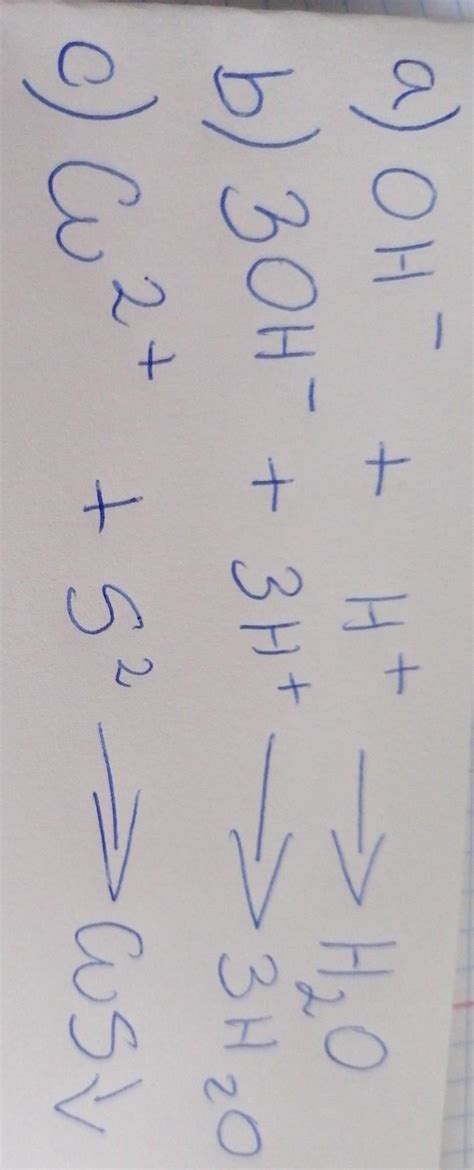 a) OH⁻ + H⁺ → H₂O
b) 3OH⁻ + 3H⁺ → 3H₂O
c) Cu²⁺ + S² → CuS↓